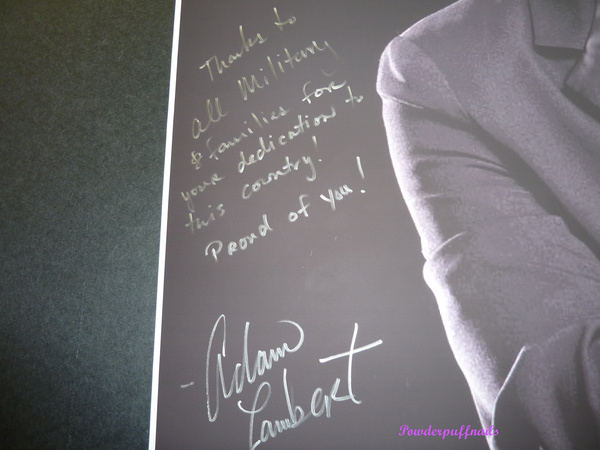 Thanks to
all Military
& families for
your dedication to
this country!
Proud of you!
- Adam
Lambert
Powderpuffnails